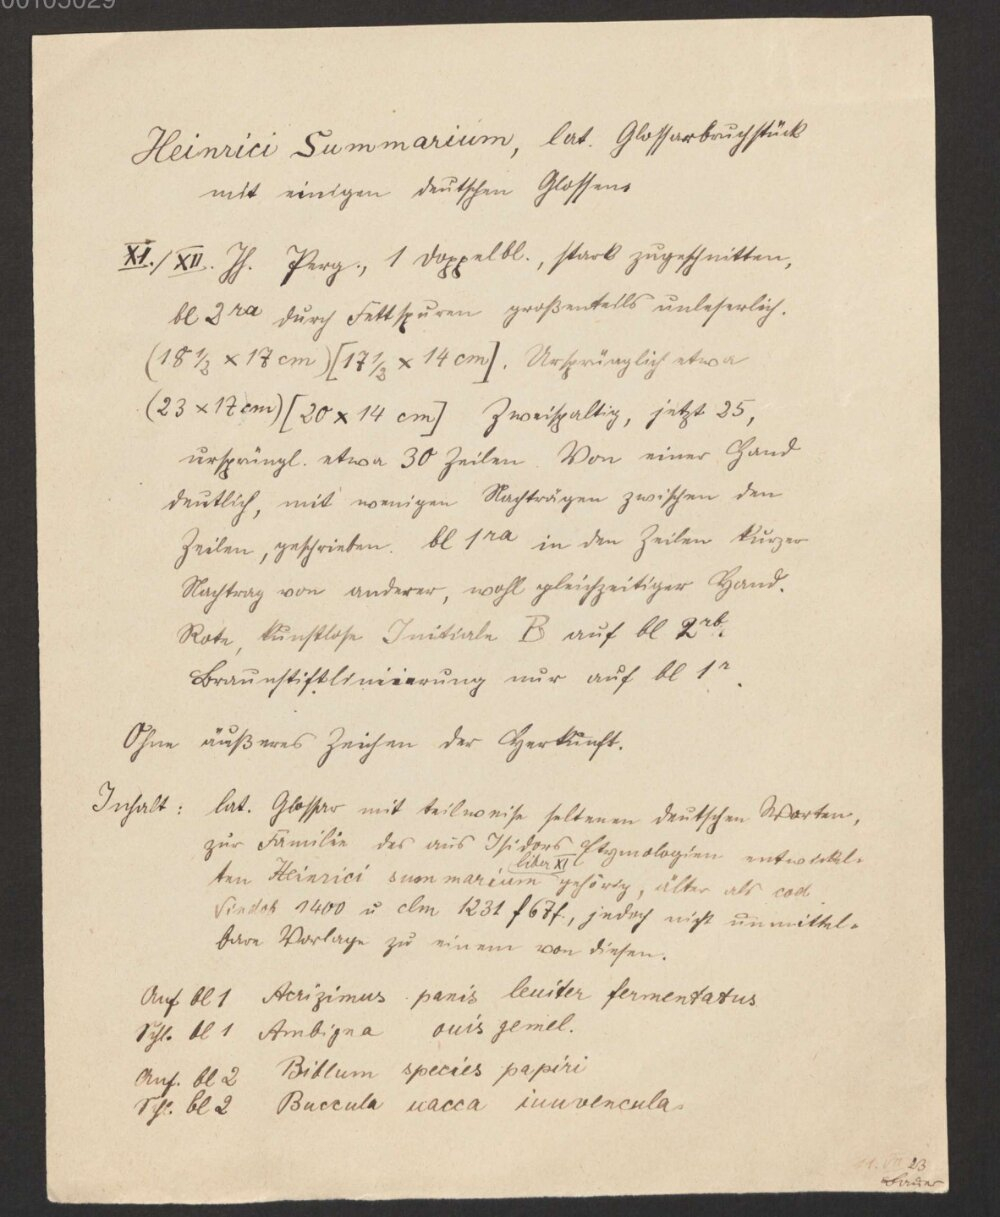 00105029
Heinrici Summarium, lat. Glossarbruchstück
mit einigen deutschen Glossen.
XI./XII. Jh. Perg., 1 Doppelbl., stark zugeschnitten,
bl 2ra durch Fettspuren großenteils unleserlich.
(18 1/2 x 17 cm) [17 1/2 x 14 cm]. Ursprünglich etwa
(23 x 17 cm) [20 x 14 cm] Zweispaltig, jetzt 25,
ursprüngl. etwa 30 Zeilen. Von einer Hand
deutlich, mit wenigen Nachträgen zwischen den
Zeilen, geschrieben. bl 1ra in den Zeilen kurzer
Nachtrag von anderer, wohl gleichzeitiger Hand.
Rote, kunstlose Initiale B auf bl 2rb.
Braunstiftliniierung nur auf bl 1r.
Ohne äußeres Zeichen der Herkunft.
Inhalt: lat. Glossar mit teilweise seltenen deutschen Worten,
zur Familie des aus Isidors Etymologien entwickel-
ten Heinrici summarium liber XI gehörig, älter als cod
Vindob 1400 u clm 1231 f 67f., jedoch nicht unmittel-
bare Vorlage zu einem von diesen.
Anf bl 1 Acrizimus panis leuiter fermentatus
Schl. bl 1 Ambigna ouis gemel.
Anf. bl 2 Biblum species papiri
Schl. bl 2 Buccula uacca iuuvencula
23